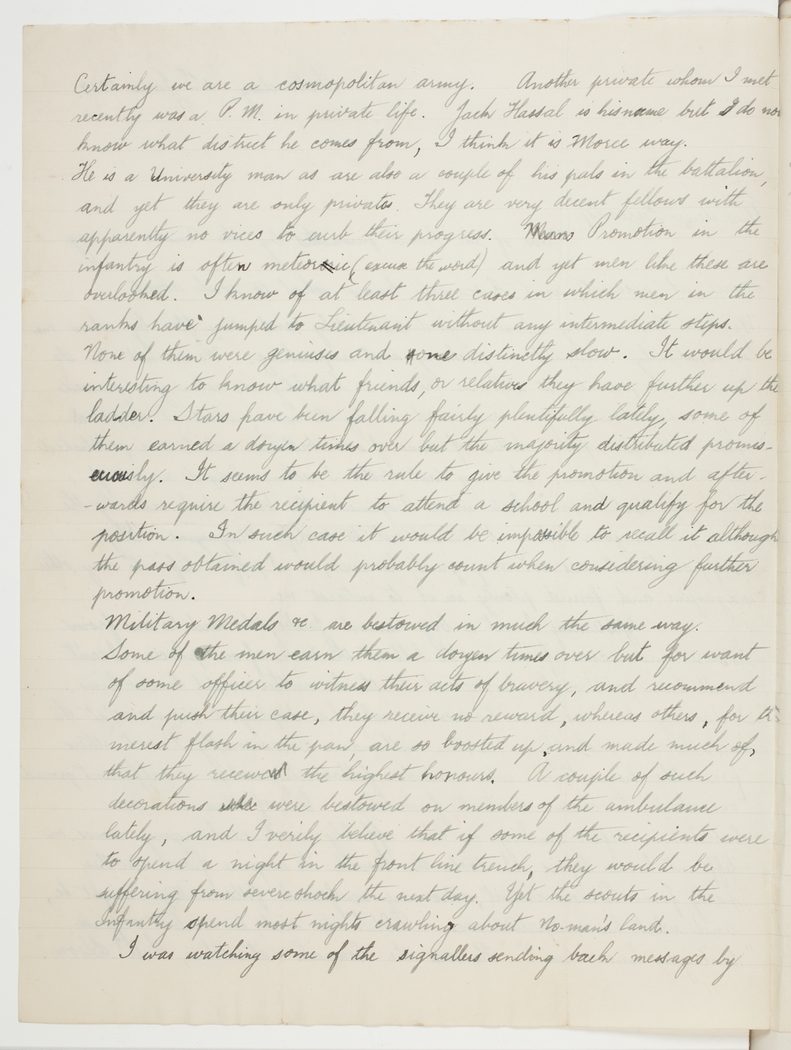 Certainly we are a cosmopolitan army. Another private whom I met
recently was a P.M. in private life. Jack Hassal is his name but I do not
know what district he comes from, I think it is Moree way.
He is a University man as are also a couple of his pals in the battalion,
and yet they are only privates. They are very decent fellows with
apparently no vices to curb their progress. Promotion in the
infantry is often meteoric (excuse the word) and yet men like these are
overlooked. I know of at least three cases in which men in the
ranks have jumped to Lieutenant without any intermediate steps.
None of them were geniusis and one distinctly slow. It would be
interesting to know what friends, or relatives they have further up the
ladder. Stars have been falling fairly plentifully lately, some of
them earned a dozen times over but the majority distributed promis-
cuously. It seems to be the rule to give the promotion and after-
-wards require the recipient to attend a school and qualify for the
position. In such case it would be impossible to recall it although
the pass obtained would probably count when considering further
promotion.
Military Medals &c. are bestowed in much the same way.
Some of the men earn them a dozen times over but for want
of some officer to witness their acts of bravery, and recommend
and push their case, they receive no reward, whereas others, for th
merest flash in the pan, are so boosted up, and made much of,
that they receive the highest honours. A couple of such
decorations were bestowed on members of the ambulance
lately, and I verily believe that if some of the recipients were
to spend a night in the front line trench, they would be
suffering from severe shock the next day. Yet the scouts in the
Infantry spend most nights crawling about No-man's land.
I was watching some of the signallers sending back messages by